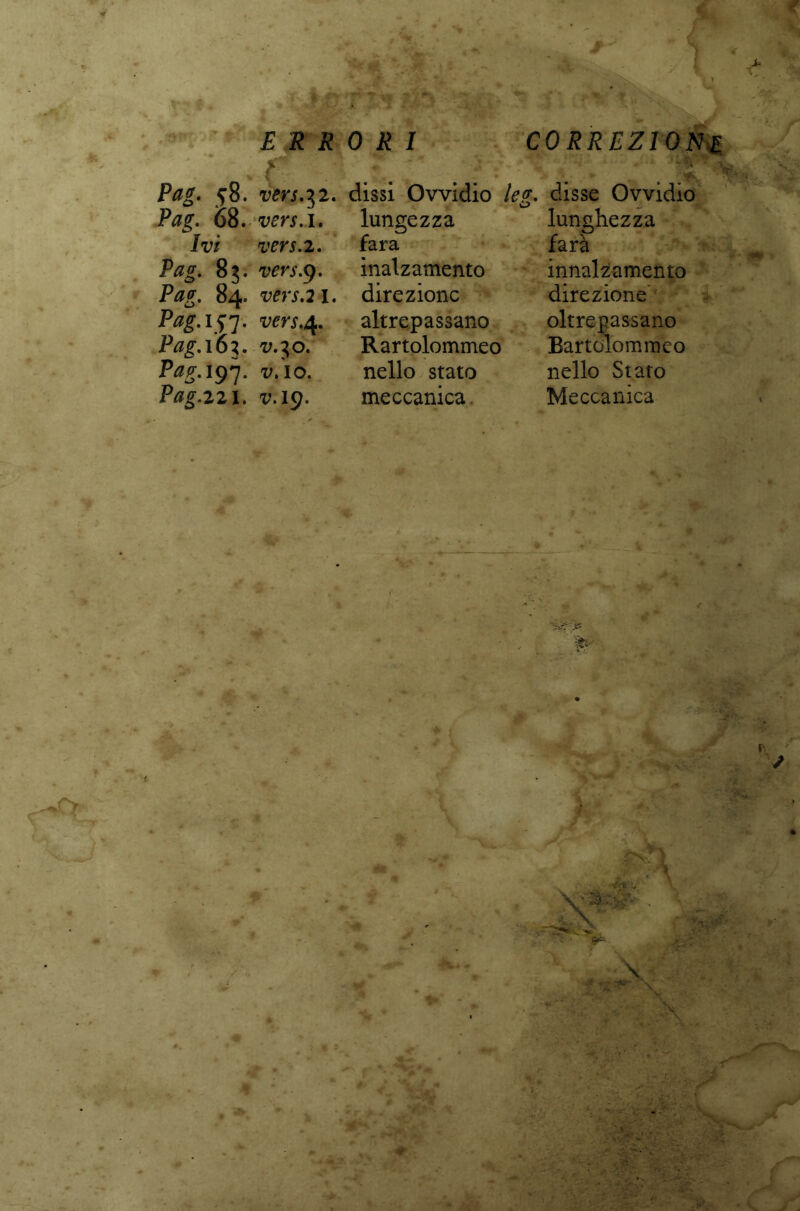 ERRORI CORREZIONE
Pag. 58. vers.32. dissi Ovvidio leg. disse Ovvidio
Pag. 68. vers.1. lungezza lunghezza
Ivi vers.2. fara farà
Pag. 83. vers.9. inalzamento innalzamento
Pag. 84. vers.21. direzionc direzione
Pag.157. vers.4. altrepassano oltrepassano
Pag.163. v.30. Rartolommeo Bartolommeo
Pag.197. v.10. nello stato nello Stato
Pag.221. v.19. meccanica Meccanica